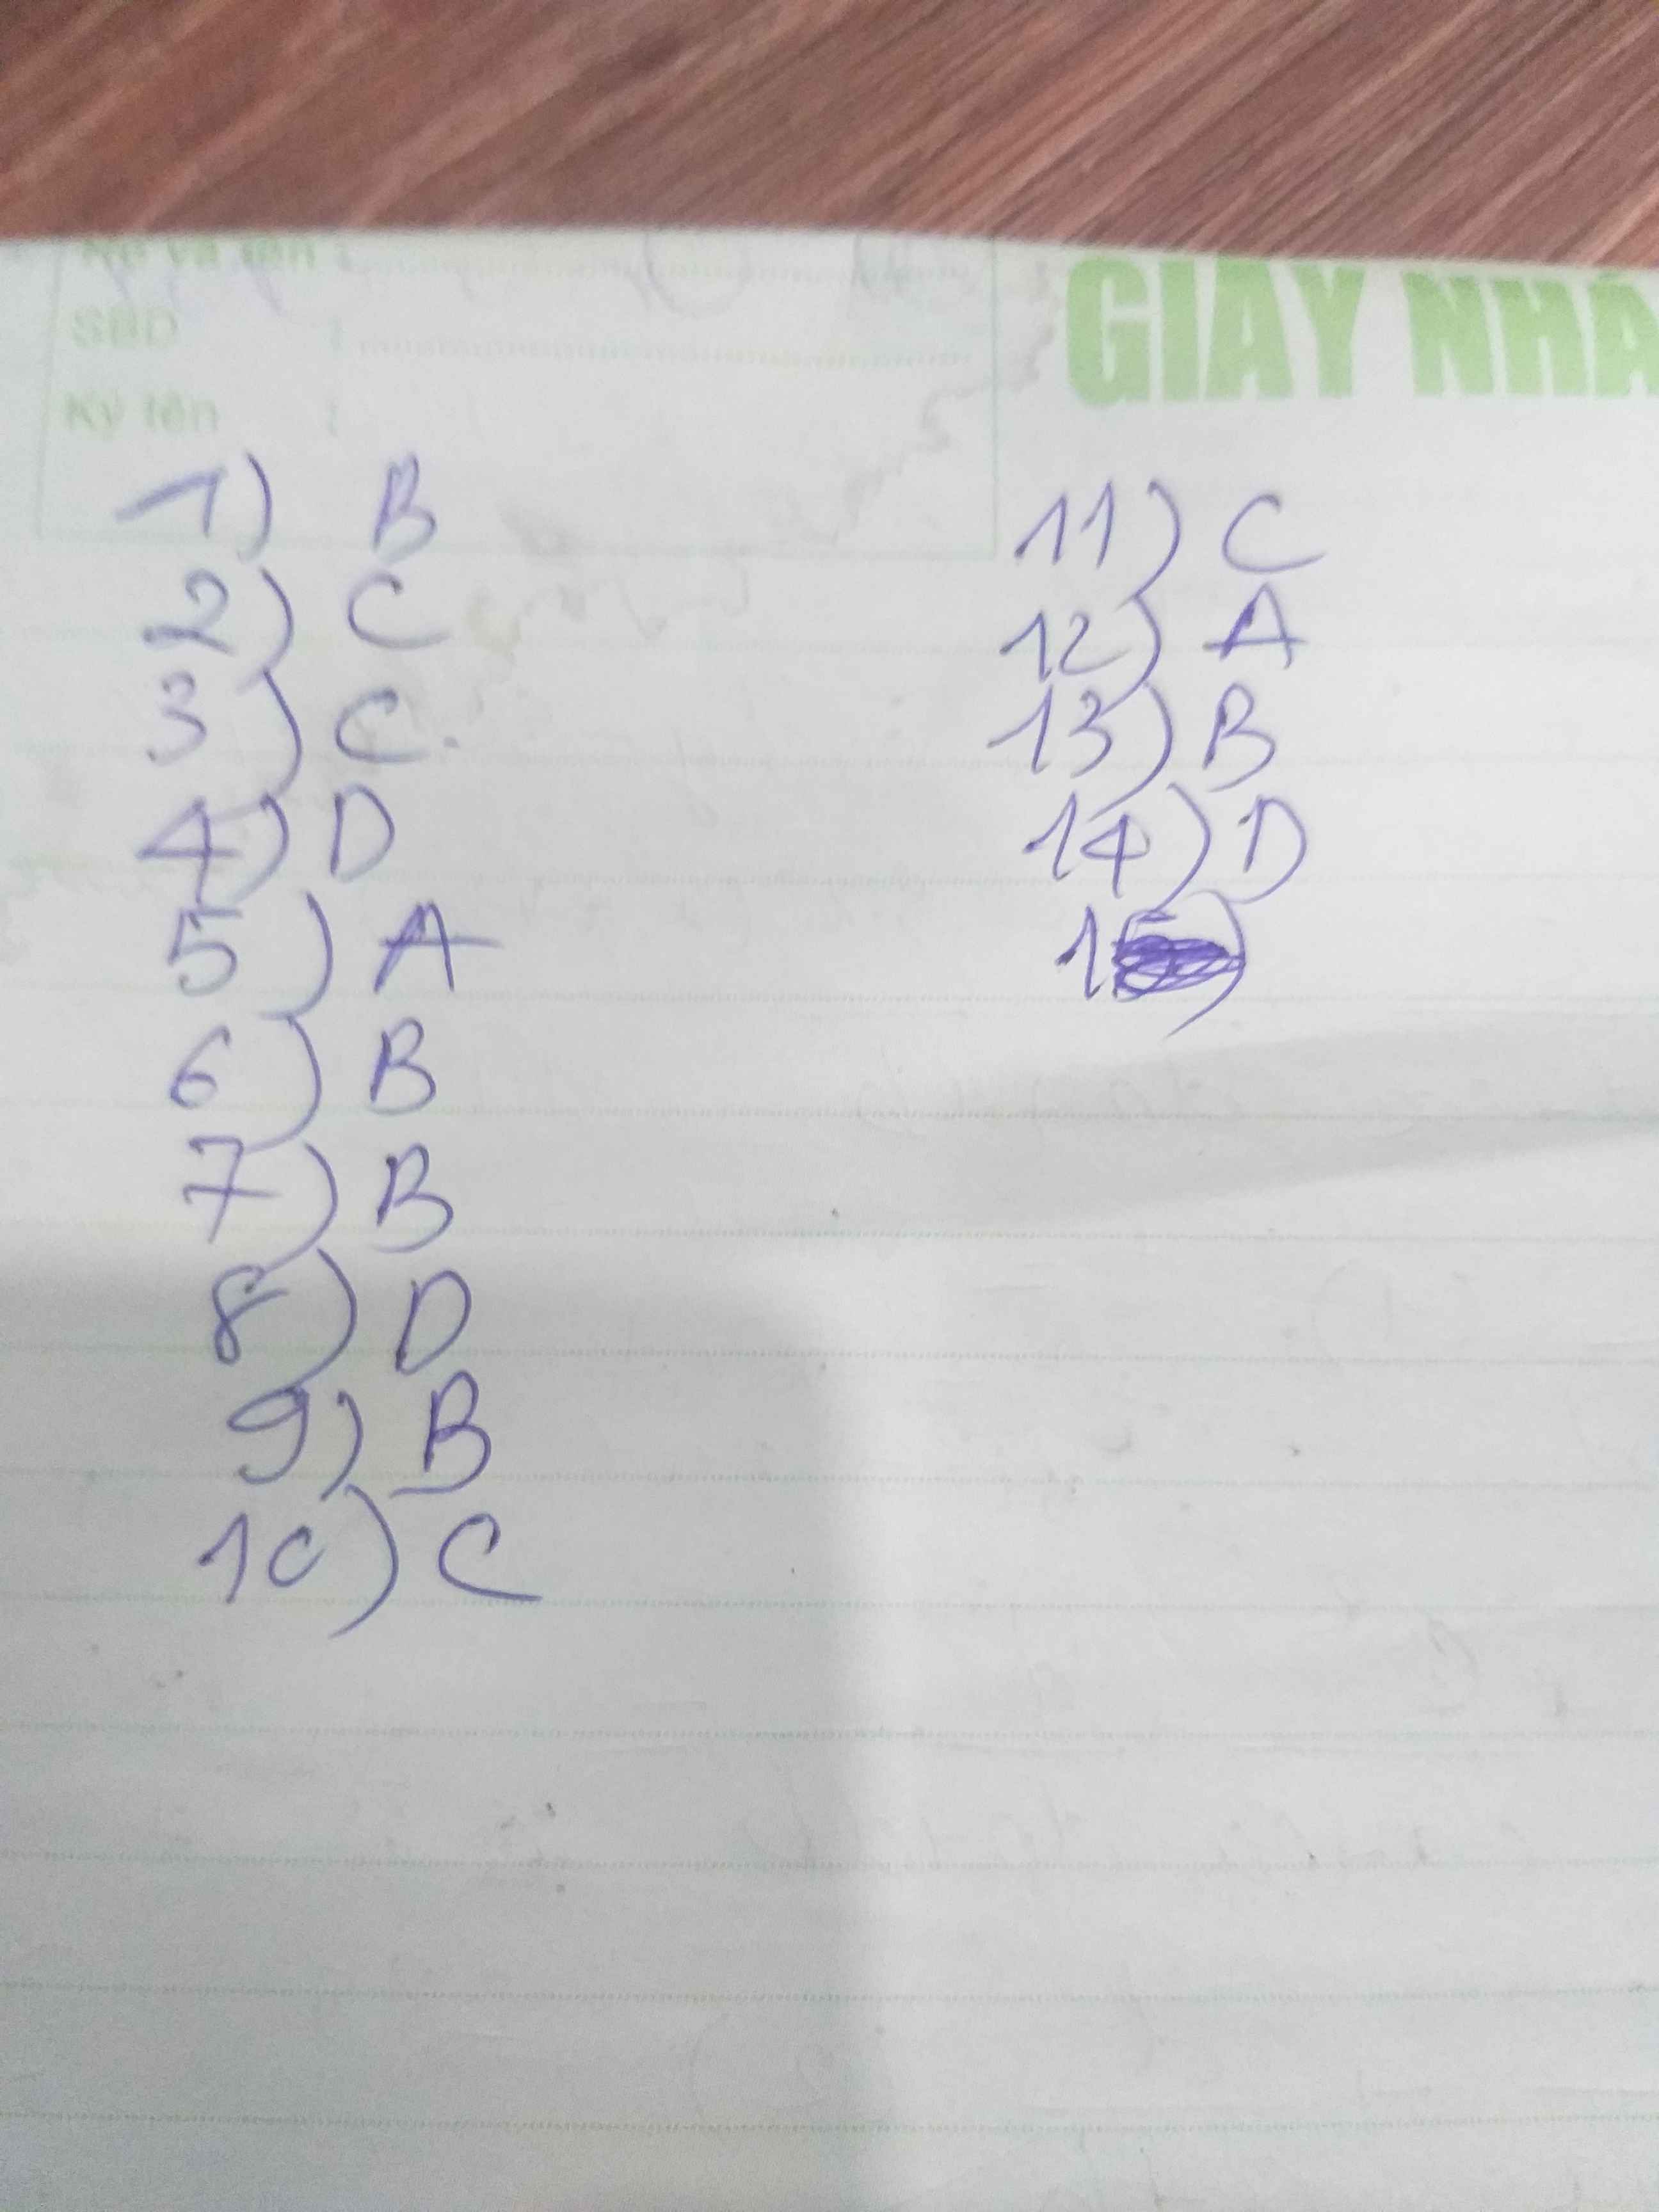 Họ và tên :
SBD :
Ký tên :
GIẤY NHÁ
1) B
2) C
3) C.
4) D
5) A
6) B
7) B
8) D
9) B
10) C
11) C
12) A
13) B
14) D